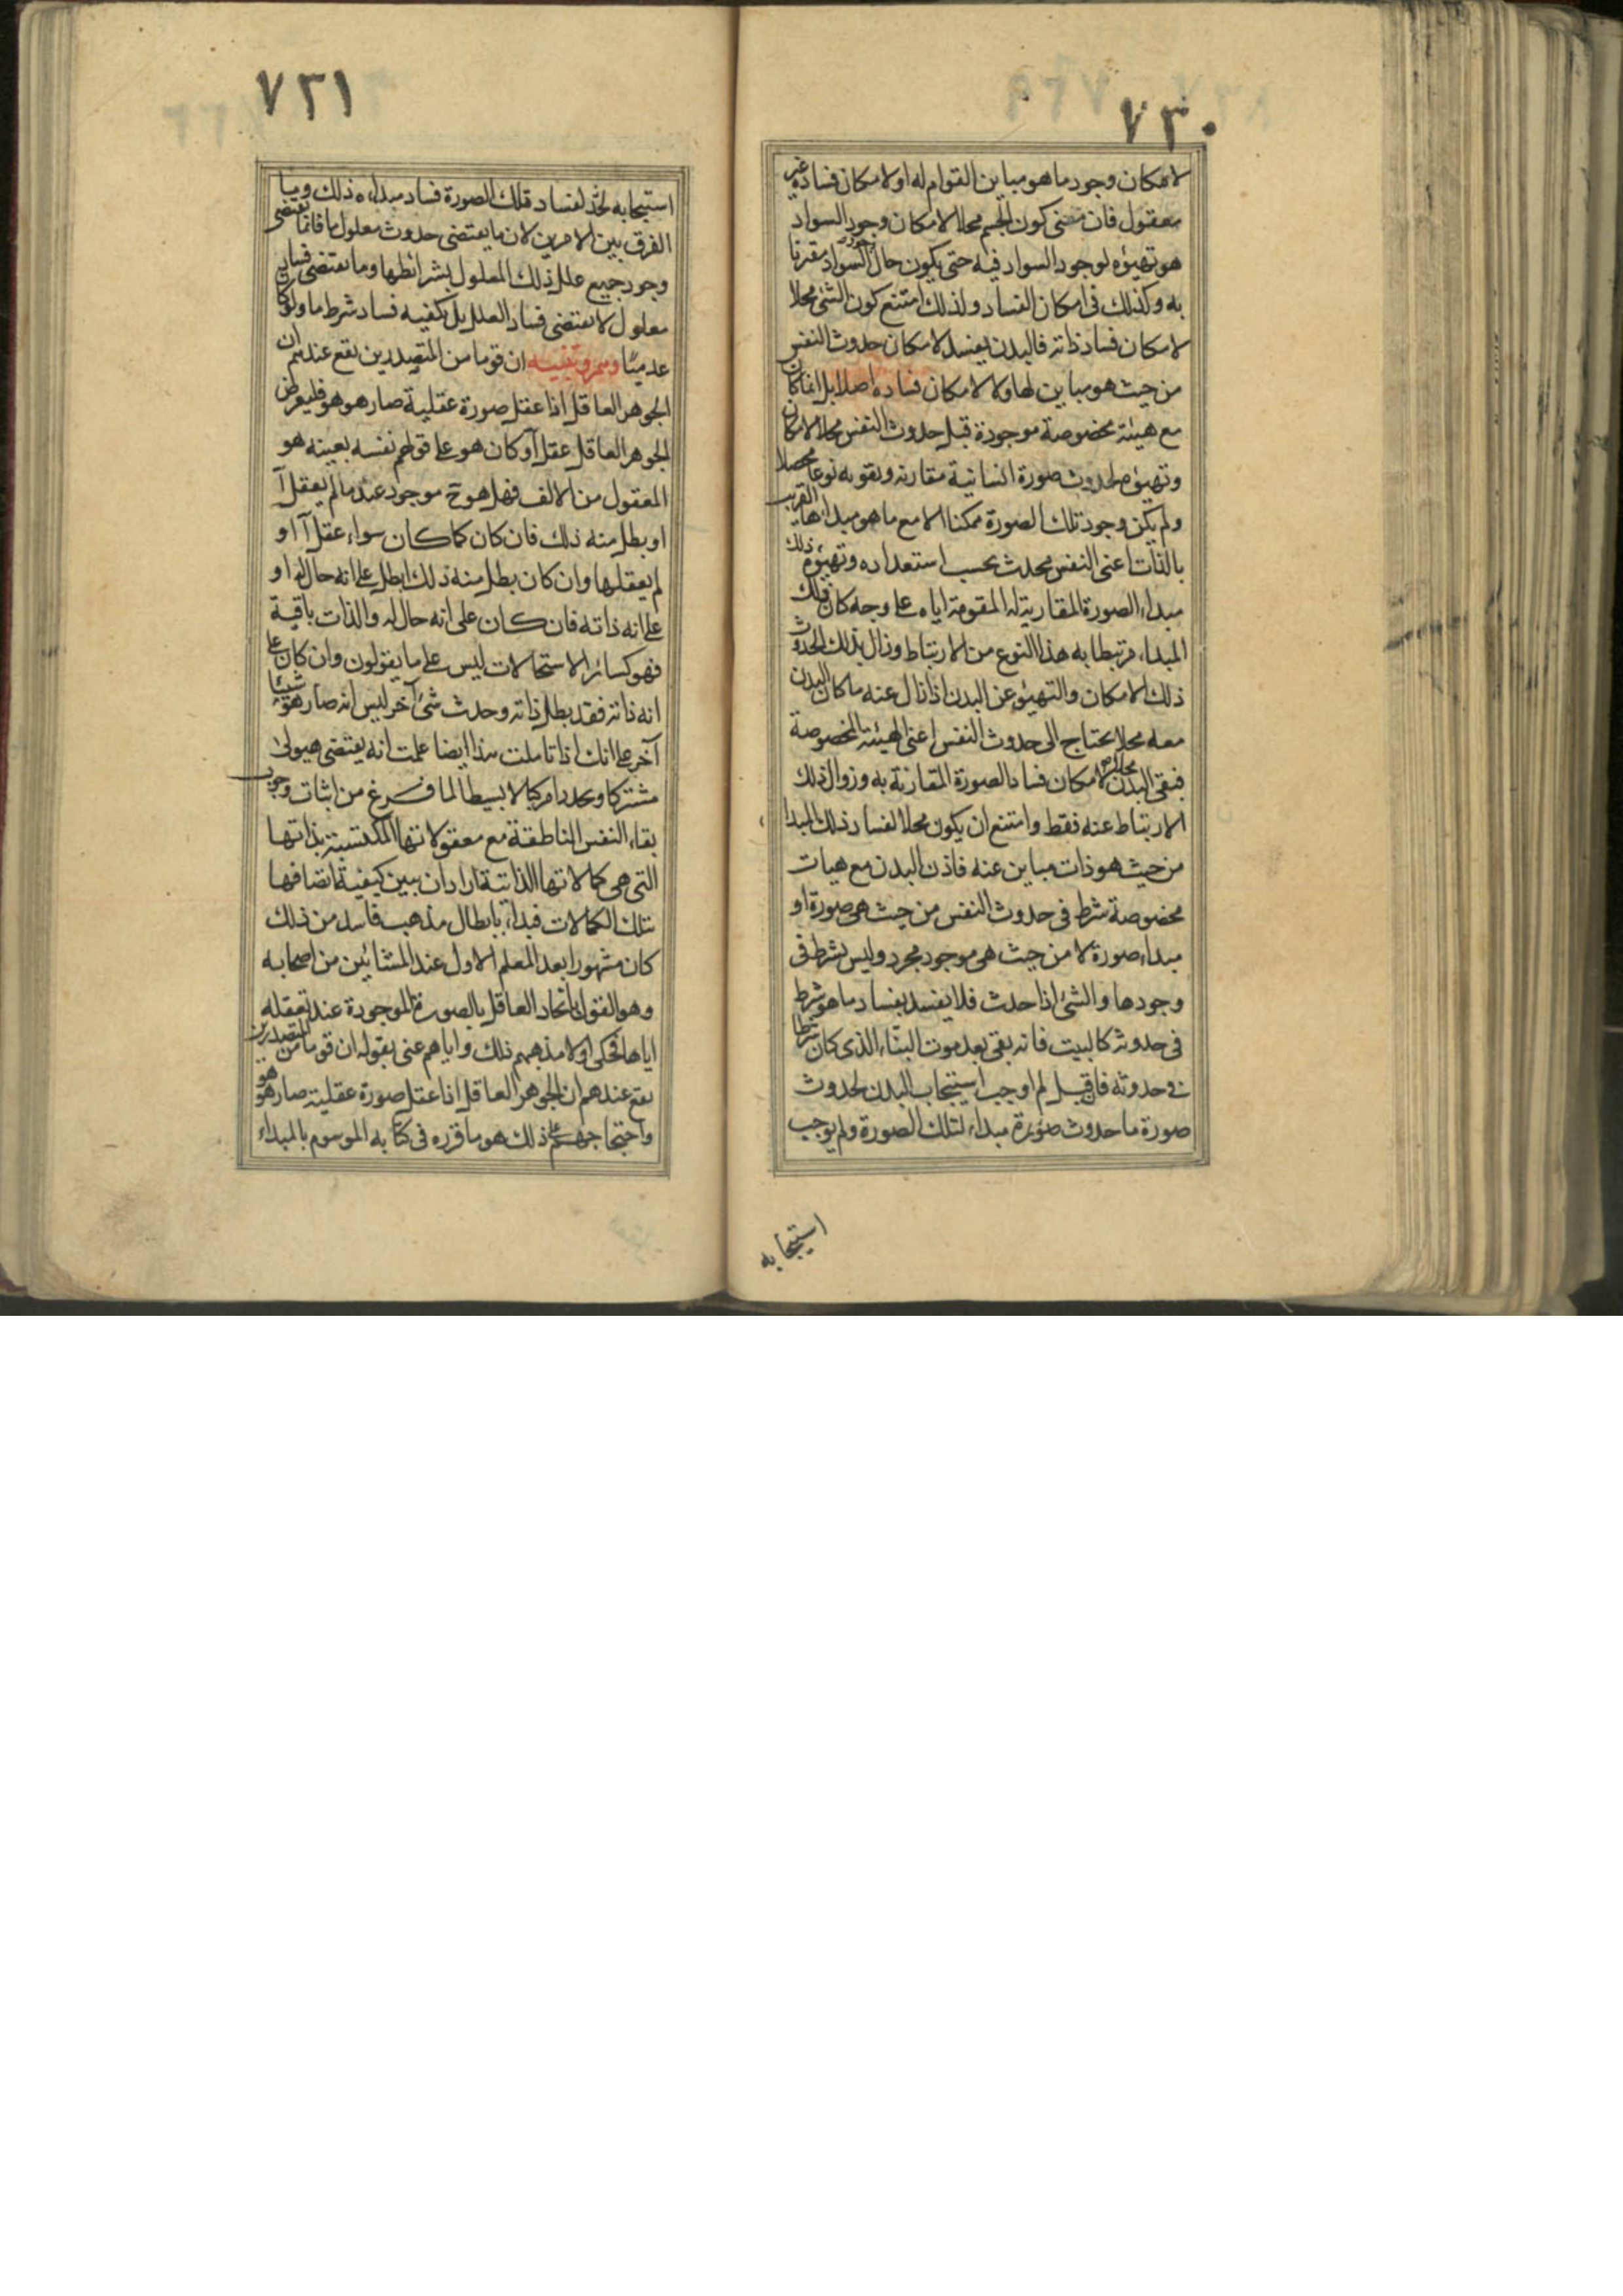 ٧٣٠
لامكان وجود ما هو مباين القوام له او لامكان فساده غير
معقول فان معنى كون الجسم محلا لامكان وجود السواد
هو تهيؤه لوجود السواد فيه حتى يكون حال وجود السواد مقترنا
به وكذلك في امكان الفساد ولذلك امتنع كون الشئ محلا
لامكان فساد ذاته فالبدن يفسد لامكان حدوث النفس
من حيث هو مباين لها ولا لامكان فساده اصلا بل انما كان
مع هيئة مخصوصة موجودة قبل حدوث النفس محلا لامكان
وتهيؤ لحدوث صورة انسانية مقارنه وتقومه نوعا محصلا
ولم يكن وجود تلك الصورة ممكنا الا مع ما هو مبداءها القريب
بالذات اعنى النفس محدث بحسب استعداده وتهيؤه ذلك
مبداء الصورة المقارنة له المقومة اياه على وجه كان ذلك
المبداء مرتبطا به هذا النوع من الارتباط وزال بذلك الحدوث
ذلك الامكان والتهيؤ عن البدن اذ زال عنه ما كان البدن
معه محلا يحتاج الى حدوث النفس اعنى الهيئة المخصوصة
فبقى البدن محلا لامكان فساد الصورة المقارنة به وزوال ذلك
الارتباط عنه فقط وامتنع ان يكون محلا لفساد ذلك المبدا
من حيث هو ذات مباين عنه فاذن البدن مع هيات
مخصوصة شرط في حدوث النفس من حيث هي صورة او
مبداء صورة لا من حيث هي موجود مجرد وليس بشرط في
وجودها والشئ اذا حدث فلا يفسد بفساد ما هو شرط
في حدوثه كالبيت فانه يبقى بعد موت البناء الذي كان شرطا
في حدوثه فان قيل لم اوجب استيجاب البدن لحدوث
صورة ما حدوث صورة مبداء لتلك الصورة ولم يوجب
استيجابه
٧٣١
استيجابه لفساد تلك الصورة فساد مبداءه ذلك وما
الفرق بين الامرين لان ما يقتضى حدوث معلول ما فانما يقتضى
وجود جميع علل ذلك المعلول بشرائطها وما يقتضى فساد
معلول لا يقتضى فساد العلل بل يكفيه فساد شرط ما ولو كان
عدميا وهم وتنبيه ان قوما من المتصدرين يقع عندهم ان
الجوهر العاقل اذا عقل صورة عقلية صار هو هو فليفرض
الجوهر العاقل عقل آ وكان هو على قولهم نفسه بعينه هو
المعقول من الالف فهل هو ح موجود عند ما لم يعقل آ
او بطل منه ذلك فان كان كما كان سواء عقل آ او
لم يعقلها وان كان بطل منه ذلك ابطل على انه حال له او
على انه ذاته فان كان على انه حال له والذات باقية
فهو كسائر الاستحالات ليس على ما يقولون وان كان على
انه ذاته فقد بطل ذاته وحدث شئ آخر ليس انه صار هو شيئا
آخر على انك اذا تاملت هذا ايضا علمت انه يقتضى هيولى
مشتركا وتجدد مركب لا بسيط لما فرغ من اثبات وجوب
بقاء النفس الناطقة مع معقولاتها المكتسبة بذاتها
التي هي كمالاتها الذاتية اراد ان يبين كيفية اتصافها
بتلك الكمالات فبداء بابطال مذهب فاسد من ذلك
كان مشهورا بعد المعلم الاول عند المشائين من اصحابه
وهو القول باتحاد العاقل بالصورة الموجودة عند تعقله
اياها فحكى اولا مذهبهم ذلك واياهم عنى بقوله ان قوما من المتصدرين
يقع عندهم ان الجوهر العاقل اذا عقل صورة عقلية صار هو هو
واحتجاجهم على ذلك هو ما قرره في كتابه الموسوم بالمبداء